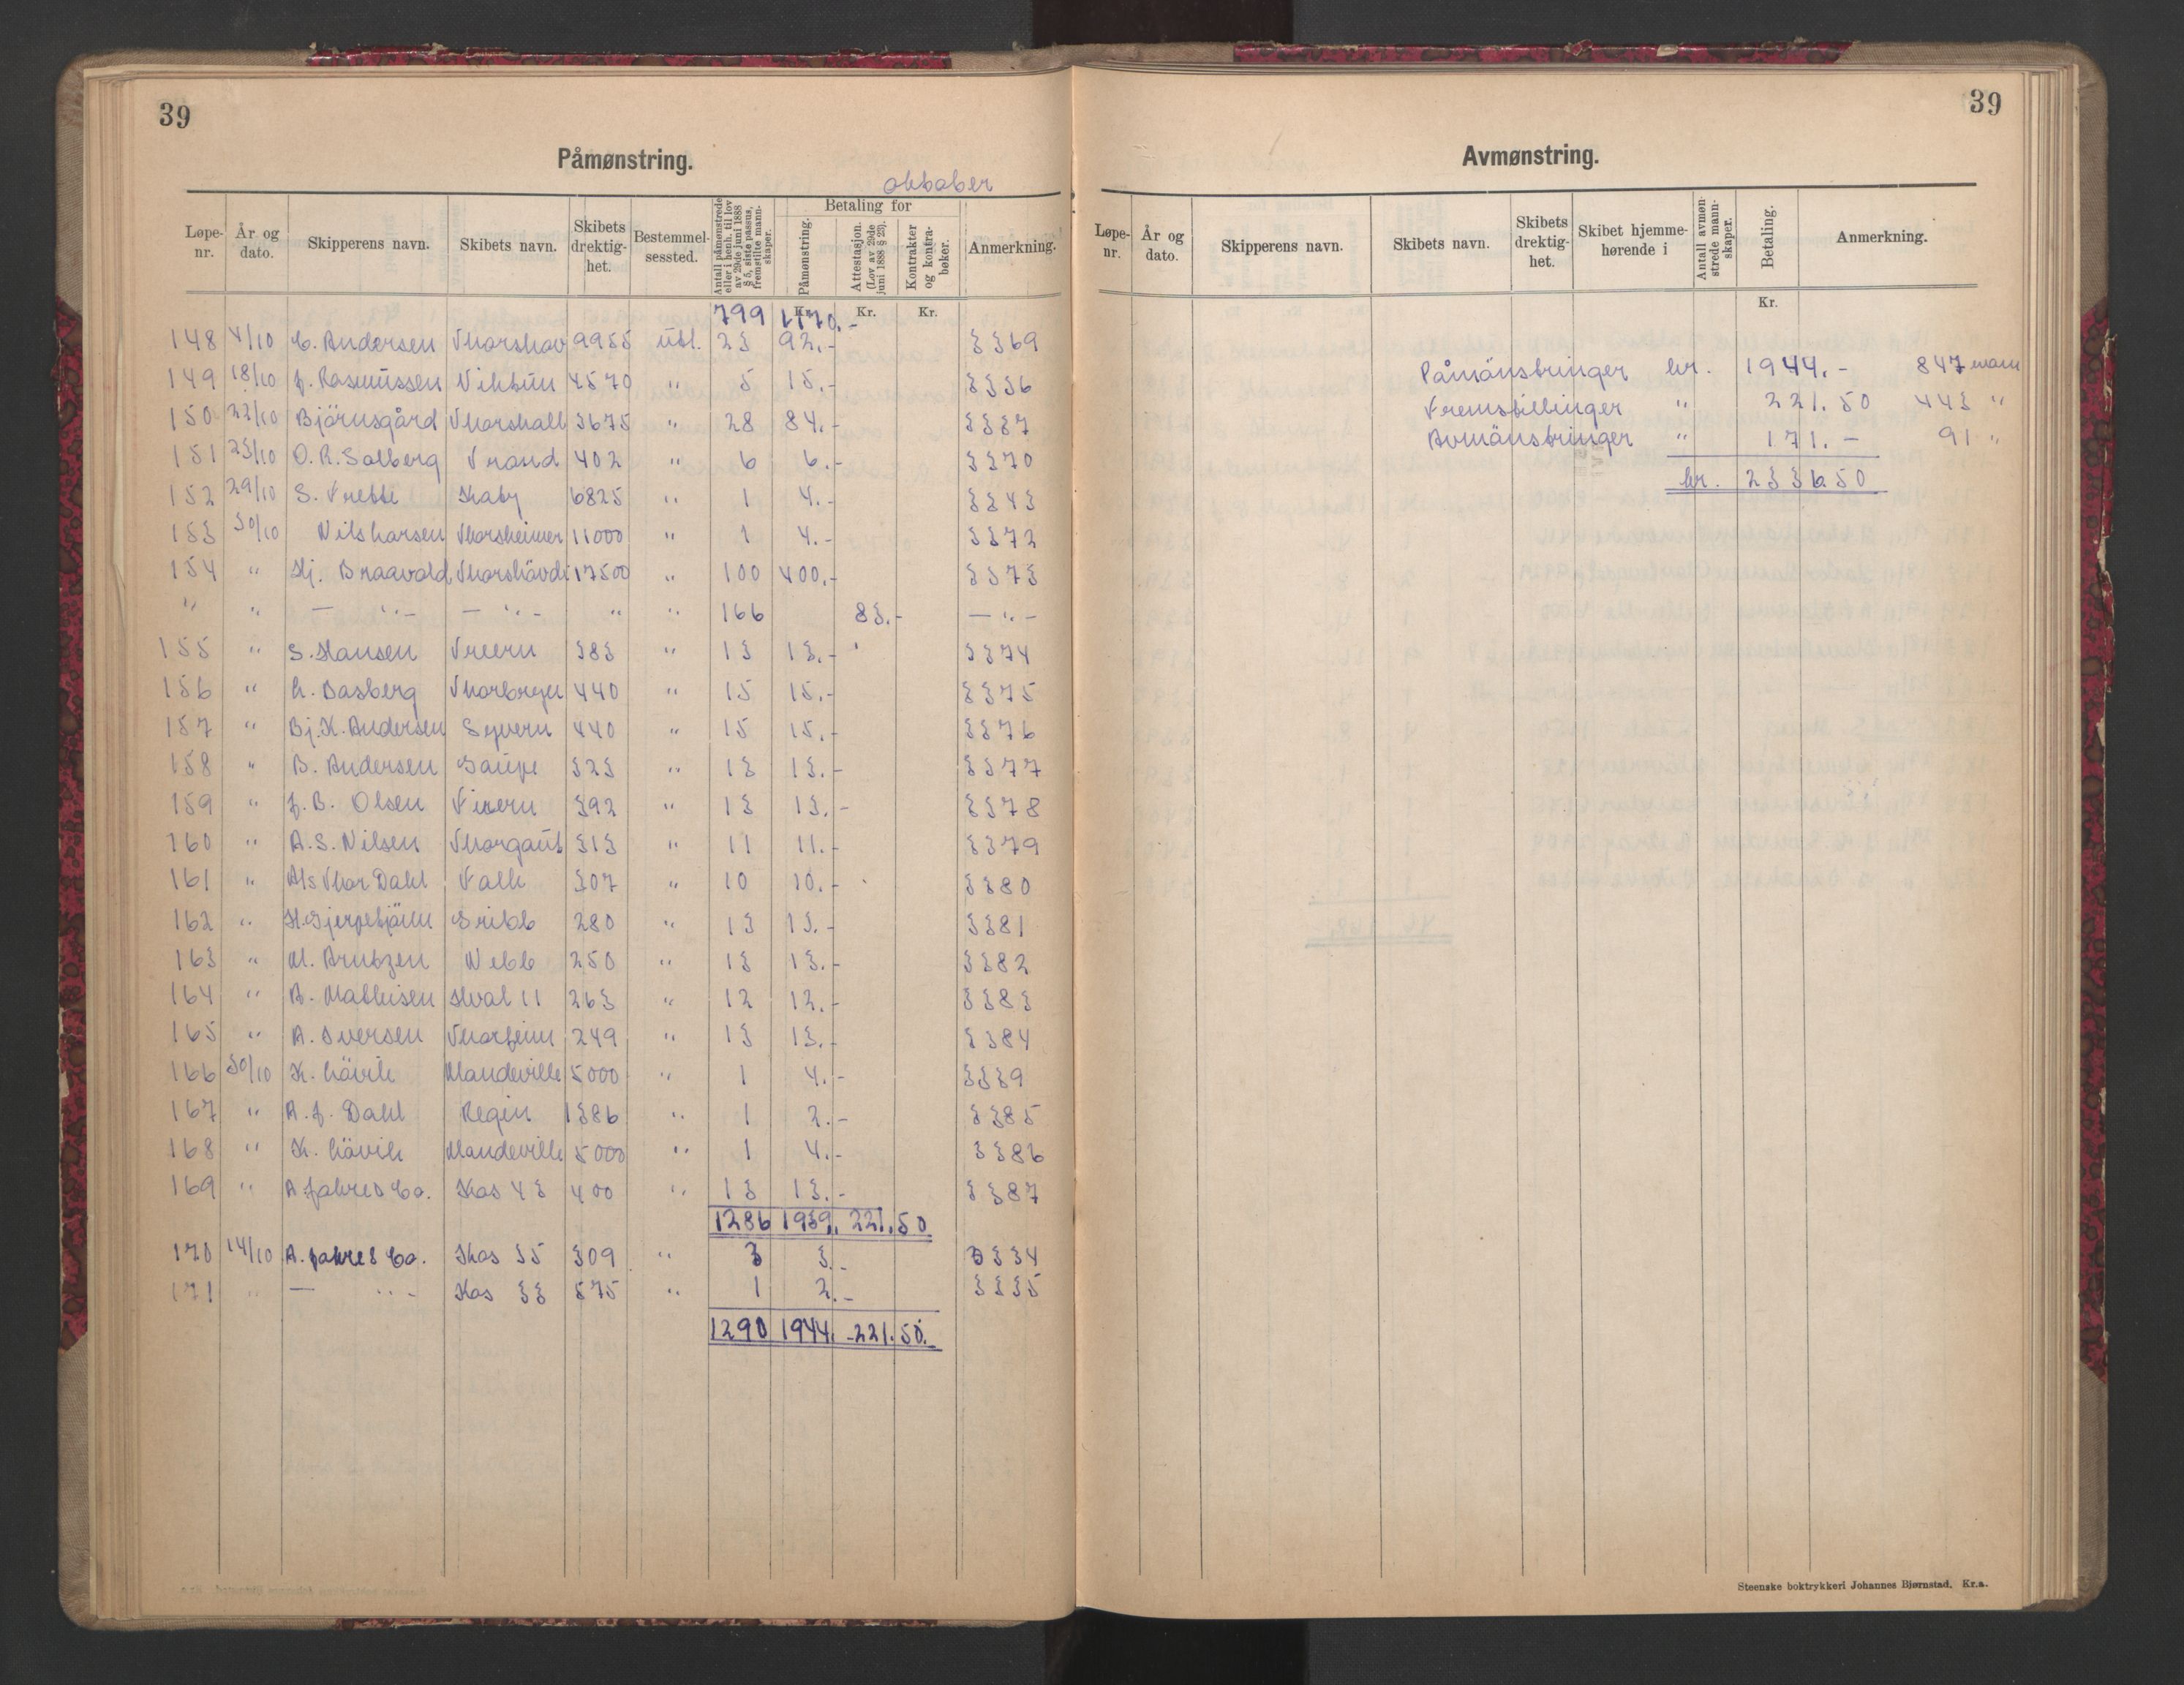 39
Påmønstring.
oktober
Løpe-nr. År og dato. Skipperens navn. Skibets navn. Skibets drektig-het. Bestemmel-sessted. Antall påmønstrede eller i henh. til lov av 29de juni 1888 § 5, siste passus, fremstilte mann-skaper. Betaling for Påmønstring. Attestasjon. (Lov av 29de juni 1888 § 23). Kontrakter og kontra-bøker. Anmerkning.
Kr. Kr. Kr.
799 1170.-
148 4/10 C. Andersen Thorshav 9955 Utl. 23 92.- 3369
149 18/10 J. Rasmussen Vikbun 4570 " 5 15.- 3336
150 22/10 Björnsgård Thorshall 3675 " 28 84.- 3337
151 23/10 O. R. Solberg Trond 402 " 6 6.- 3370
152 29/10 S. Frette Skaby 6825 " 1 4.- 3343
153 30/10 Nils Larsen Thorsheimer 11000 " 1 4.- 3372
154 " Hj. Braavold Thorshövdi 17500 " 100 400.- 3373
" " — " — — " — " " 166 83.- — " —
155 " S. Hansen Treern 383 " 13 13.- 3374
156 " L. Basberg Thorbryn 440 " 15 15.- 3375
157 " Bj. K. Andersen Syvern 440 " 15 15.- 3376
158 " B. Andersen Gaupe 323 " 13 13.- 3377
159 " J. B. Olsen Viern 392 " 13 13.- 3378
160 " A. S. Nilsen Thorgaut 313 " 11 11.- 3379
161 " A/s Thor Dahl Falk 307 " 10 10.- 3380
162 " H. Gjerpetjönn Gribb 280 " 13 13.- 3381
163 " M. Arntzen Nebb 250 " 13 13.- 3382
164 " B. Mathisen Hval 11 263 " 12 12.- 3383
165 " A. Iversen Thorfinn 249 " 13 13.- 3384
166 30/10 K. Lövik Mandeville 5000 " 1 4.- 3339
167 " A. J. Dahl Regin 1386 " 1 2.- 3385
168 " K. Lövik Mandeville 5000 " 1 4.- 3386
169 " A Jahres Co. Kos 43 400 " 13 13.- 3387
1286 1939. 221.50
170 14/10 A. Jahres Co. Kos 35 309 " 3 3.- 3334
171 " — " — Kos 33 575 " 1 2.- 3335
1290 1944.- 221.50.
39
Avmønstring.
Løpe-nr. År og dato. Skipperens navn. Skibets navn. Skibets drektig-het. Skibet hjemme-hørende i Antall avmøn-strede mann-skaper. Betaling. Anmerkning.
Kr.
Påmönstringer kr. 1944.- 847 mann
Fremstillinger " 221.50 443 "
Avmönstringer " 171.- 91 "
kr. 2336.50
Steenske boktrykkeri Johannes Bjørnstad. Kr.a.